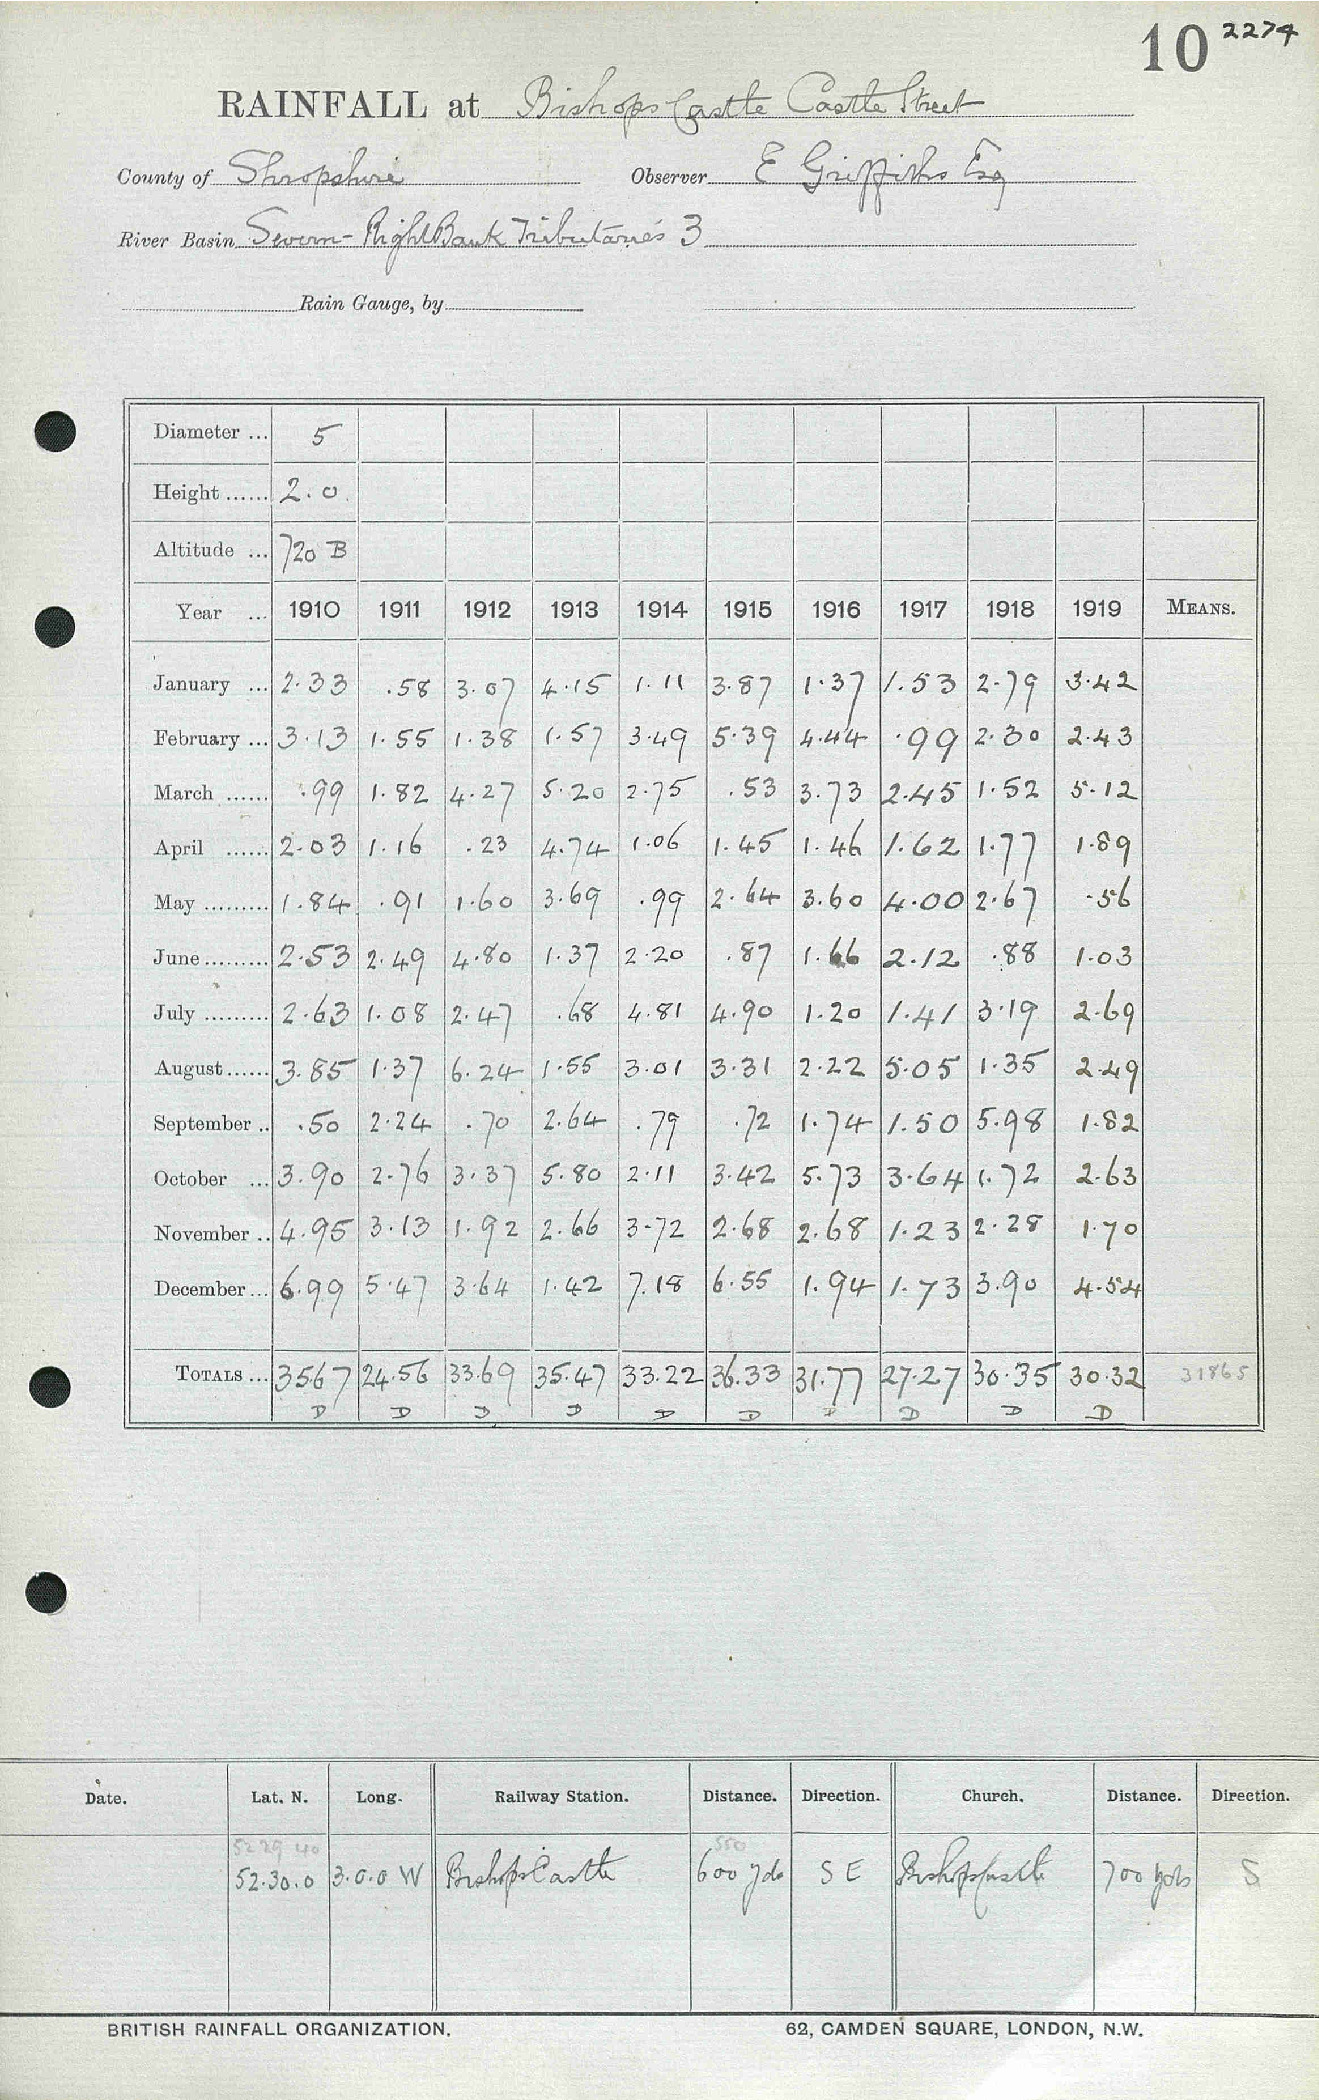 10 2274
RAINFALL at Bishops Castle Castle Street
County of Shropshire Observer E Griffiths Esq
River Basin Severn - Right Bank Tributaries 3
Rain Gauge, by
Diameter ... 5
Height ...... 2.0
Altitude ... 720 B
Year ... 1910 1911 1912 1913 1914 1915 1916 1917 1918 1919 MEANS.
January ... 2.33 .58 3.07 4.15 1.11 3.87 1.37 1.53 2.79 3.42
February ... 3.13 1.55 1.38 1.57 3.49 5.39 4.44 .99 2.30 2.43
March ...... .99 1.82 4.27 5.20 2.75 .53 3.73 2.45 1.52 5.12
April ...... 2.03 1.16 .23 4.74 1.06 1.45 1.46 1.62 1.77 1.89
May ......... 1.84 .91 1.60 3.69 .99 2.64 3.60 4.00 2.67 .56
June ......... 2.53 2.49 4.80 1.37 2.20 .87 1.66 2.12 .88 1.03
July ......... 2.63 1.08 2.47 .68 4.81 4.90 1.20 1.41 3.19 2.69
August ...... 3.85 1.37 6.24 1.55 3.01 3.31 2.22 5.05 1.35 2.49
September .. .50 2.24 .70 2.64 .79 .72 1.74 1.50 5.98 1.82
October ... 3.90 2.76 3.37 5.80 2.11 3.42 5.73 3.64 1.72 2.63
November .. 4.95 3.13 1.92 2.66 3.72 2.68 2.68 1.23 2.28 1.70
December ... 6.99 5.47 3.64 1.42 7.18 6.55 1.94 1.73 3.90 4.54
TOTALS ... 35.67 24.56 33.69 35.47 33.22 36.33 31.77 27.27 30.35 30.32 31865
D D D D D D D D D D
Date. Lat. N. Long. Railway Station. Distance. Direction. Church. Distance. Direction.
52 29 40 550
52.30.0 3.0.0 W Bishops Castle 600 yds S E Bishops Castle 700 yds S
BRITISH RAINFALL ORGANIZATION. 62, CAMDEN SQUARE, LONDON, N.W.